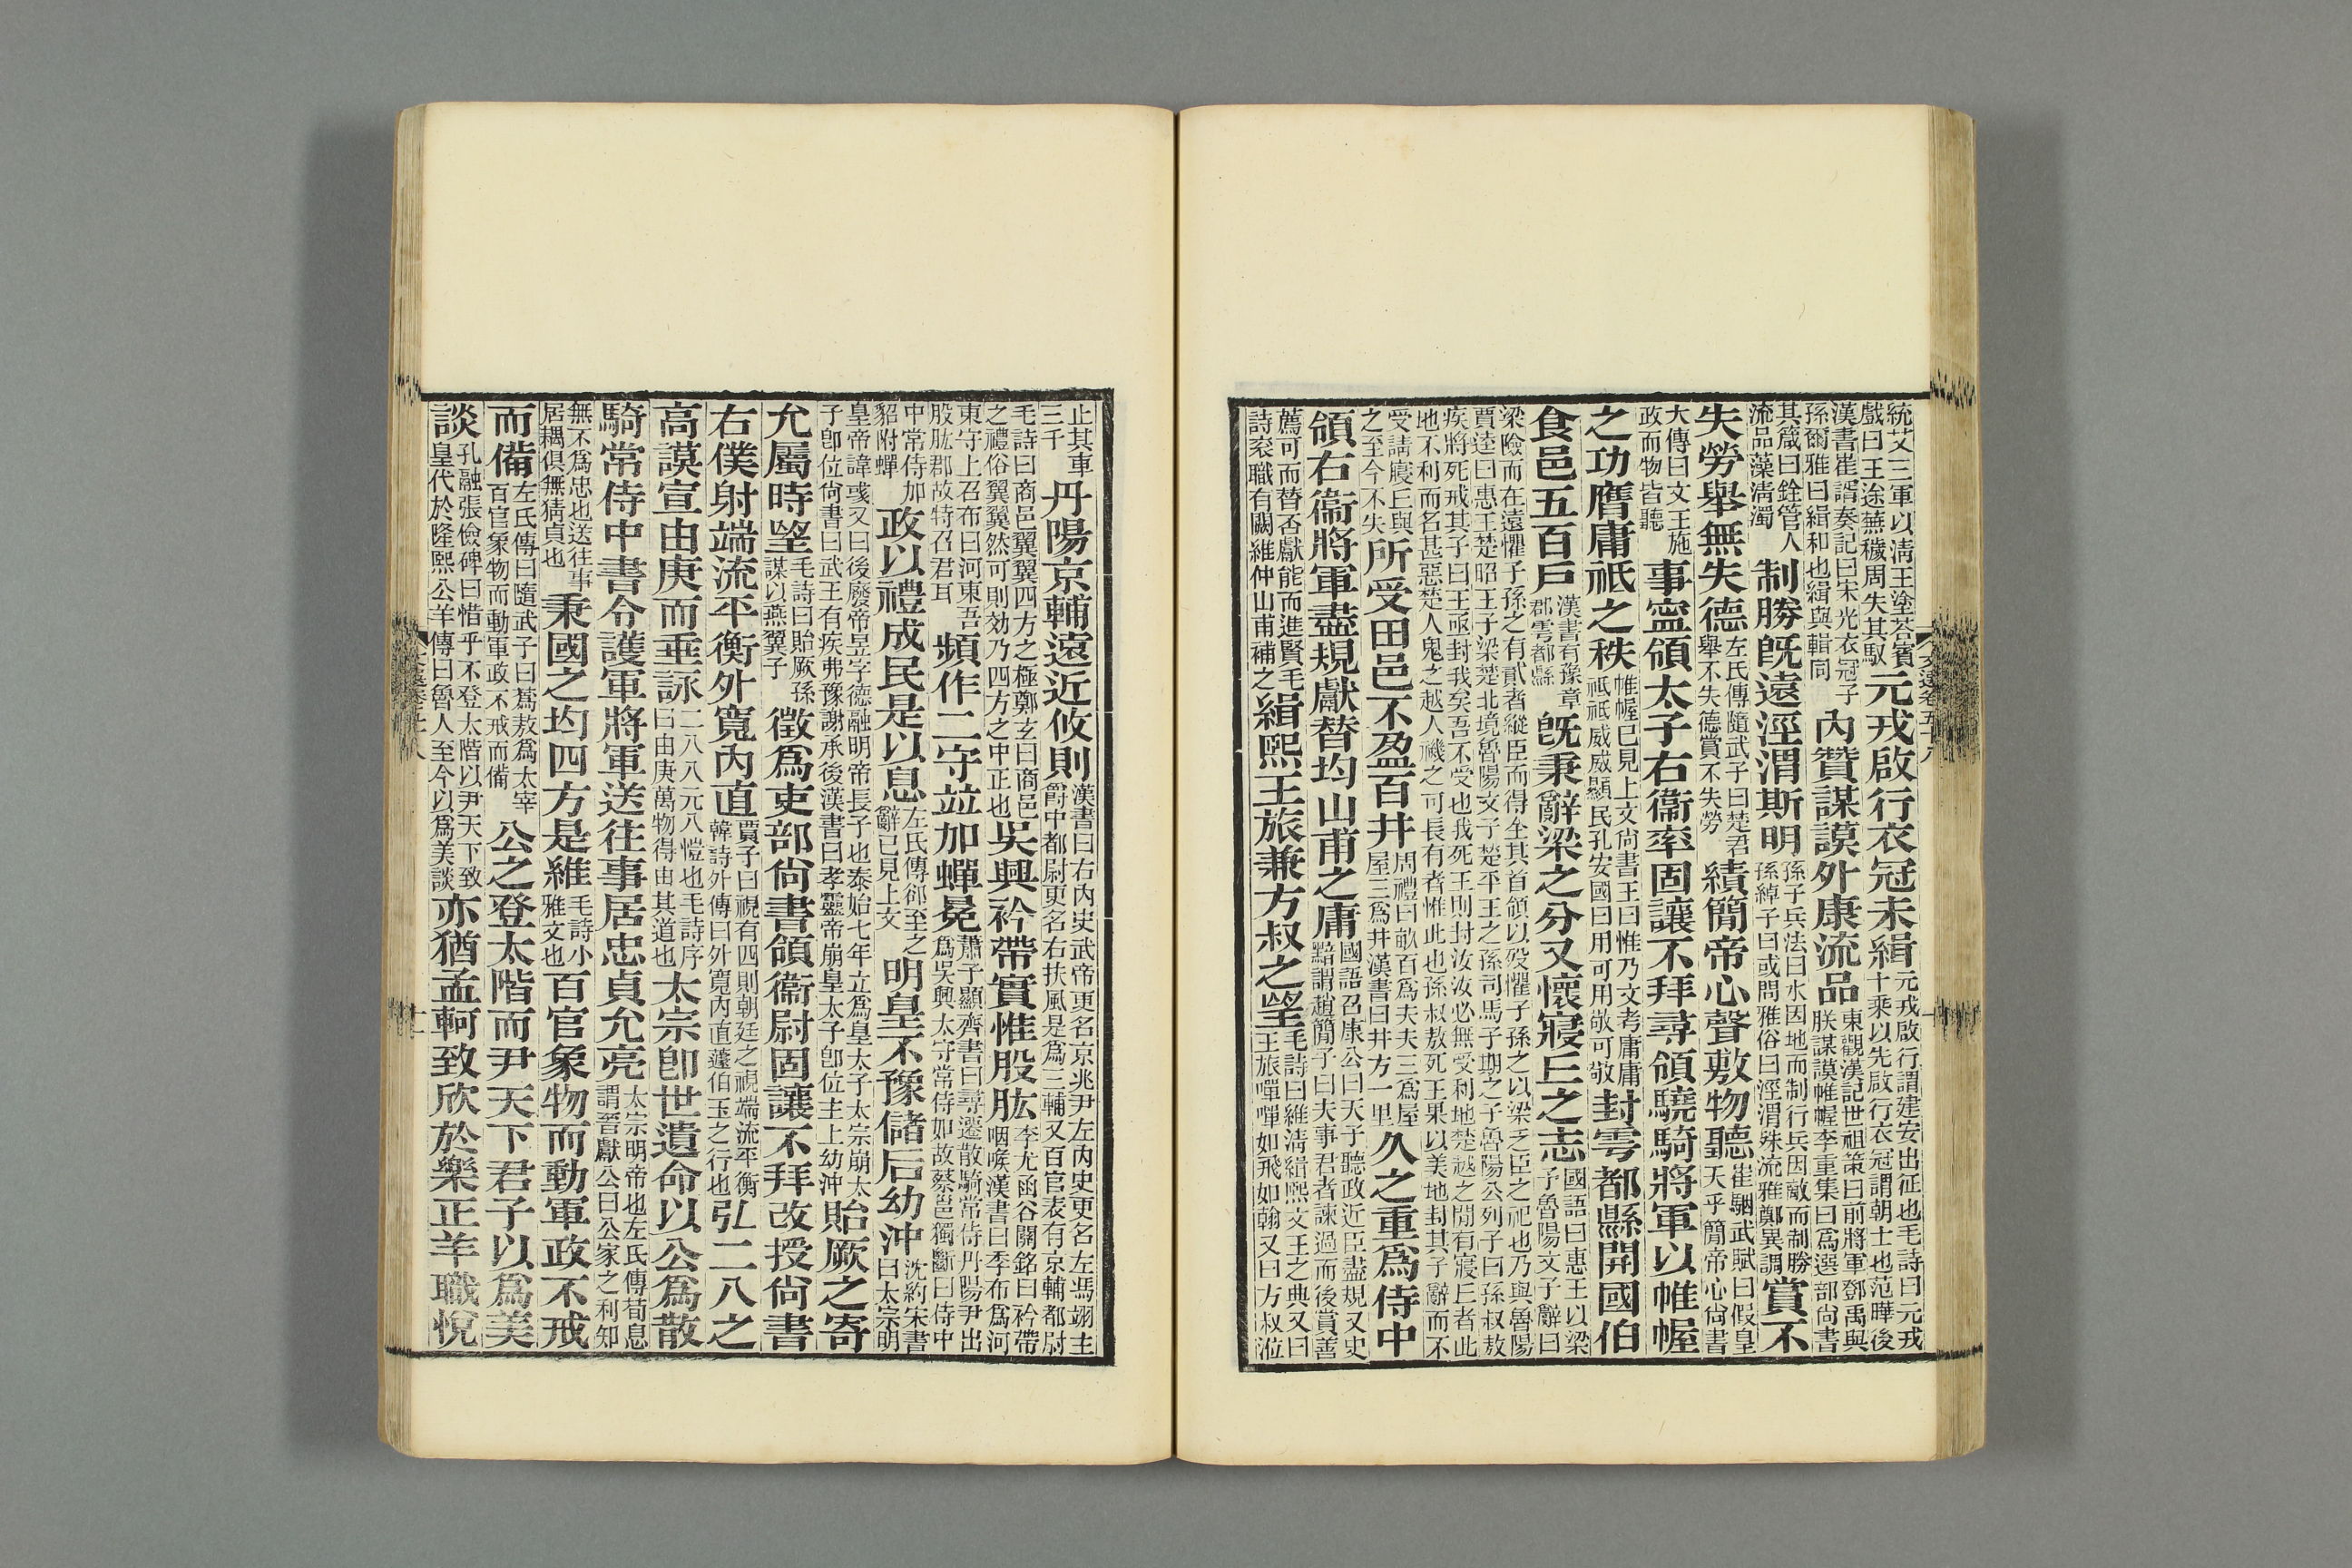 統艾三軍以清王塗荅賓戲曰王塗蕪穢周失其馭元戎啟行衣冠未緝元戎啟行謂建安出征也毛詩曰元戎十乘以先啟行衣冠謂朝士也范曄後
漢書崔諝奏記曰宋光衣冠子孫爾雅曰緝和也緝與輯同內贊謀謨外康流品東觀漢記世祖策曰前將軍鄧禹與朕謀謨帷幄李重集曰爲選部尚書
其箴曰銓管人流品藻清濁制勝旣遠涇渭斯明孫子兵法曰水因地而制行兵因敵而制勝孫綽子曰或問雅俗曰涇渭殊流雅鄭異調賞不
失勞舉無失德左氏傳隨武子曰楚君舉不失德賞不失勞績簡帝心聲敷物聽崔駰武賦曰假皇天乎簡帝心尚書
大傳曰文王施政而物皆聽事寧領太子右衞率固讓不拜尋領驍騎將軍以帷幄
之功膺庸祇之秩帷幄已見上文尚書王曰惟乃文考庸庸祇祇威威顯民孔安國曰用可用敬可敬封雩都縣開國伯
食邑五百戶漢書有豫章郡雩都縣旣秉辭梁之分又懷寢丘之志國語曰惠王以梁子魯陽文子辭曰
梁險而在遠懼子孫之有貳者縱臣而得全其首領以歿懼子孫之以梁乏臣之祀也乃與魯陽賈逵曰惠王楚昭王子梁楚北境魯陽文子楚平王之孫司馬子期之子魯陽公列子曰孫叔敖
疾將死戒其子曰王亟封我矣吾不受也我死王則封汝汝必無受利地楚越之閒有寢丘者此地不利而名甚惡楚人鬼之越人禨之可長有者惟此也孫叔敖死王果以美地封其子辭而不
受請寢丘與之至今不失所受田邑不盈百井周禮曰畝百爲夫夫三爲屋屋三爲井漢書曰井方一里久之重爲侍中
領右衞將軍盡規獻替均山甫之庸國語召康公曰天子聽政近臣盡規又史黯謂趙簡子曰夫事君者諫過而後賞善
薦可而替否獻能而進賢毛詩衮職有闕維仲山甫補之緝熙王旅兼方叔之望毛詩曰維清緝熙文王之典又曰王旅嘽嘽如飛如翰又曰方叔涖
止其車三千丹陽京輔遠近攸則漢書曰右內史武帝更名京兆尹左內史更名左馮翊主爵中都尉更名右扶風是爲三輔又百官表有京輔都尉
毛詩曰商邑翼翼四方之極鄭玄曰商邑之禮俗翼翼然可則効乃四方之中正也吳興衿帶實惟股肱李尤函谷關銘曰衿帶咽喉漢書曰季布爲河
東守上召布曰河東吾股肱郡故特召君耳頻作二守竝加蟬冕蕭子顯齊書曰尋遷散騎常侍丹陽尹出爲吳興太守常侍如故蔡邕獨斷曰侍中
中常侍加貂附蟬政以禮成民是以息左氏傳郤至之辭已見上文明皇不豫儲后幼沖沈約宋書曰太宗明
皇帝諱彧又曰後廢帝昱字德融明帝長子也泰始七年立爲皇太子太宗崩太子卽位尚書曰武王有疾弗豫謝承後漢書曰孝靈帝崩皇太子卽位主上幼沖貽厥之寄
允屬時望毛詩曰貽厥孫謀以燕翼子徵爲吏部尚書領衞尉固讓不拜改授尚書
右僕射端流平衡外寬內直賈子曰視有四則朝廷之視端流平衡韓詩外傳曰外寬內直蘧伯玉之行也弘二八之
高謨宣由庚而垂詠二八八元八愷也毛詩序曰由庚萬物得由其道也太宗卽世遺命以公爲散
騎常侍中書令護軍將軍送往事居忠貞允亮太宗明帝也左氏傳荀息謂晉獻公曰公家之利知
無不爲忠也送往事居耦俱無猜貞也秉國之均四方是維毛詩小雅文也百官象物而動軍政不戒
而備左氏傳曰隨武子曰蔿敖爲太宰百官象物而動軍政不戒而備公之登太階而尹天下君子以爲美
談孔融張儉碑曰惜乎不登太階以尹天下致皇代於隆熙公羊傳曰魯人至今以爲美談亦猶孟軻致欣於樂正羊職悅